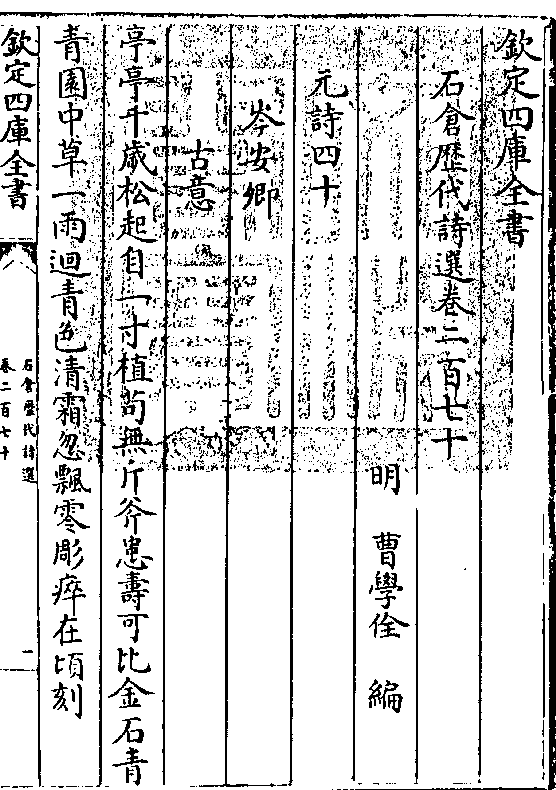 欽定四庫全書
石倉歷代詩選卷二百七十
明 曹學佺 編
元詩四十
岑安卿
古意
亭亭千歲松起自一寸植茍無斤斧患壽可比金石青
青園中草一雨迴青色清霜忽飄零彫瘁在頃刻
欽定四庫全書
石倉歷代詩選
卷二百七十
一